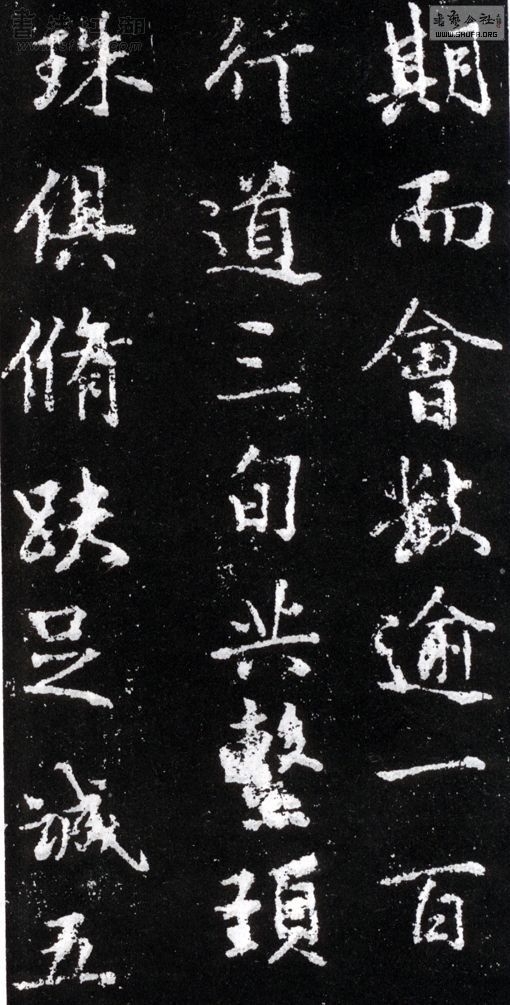 期而會數逾一百
行道三旬共繫頸
珠俱脩趺足誠五
書法江湖
WWW.SHUFA.ORG